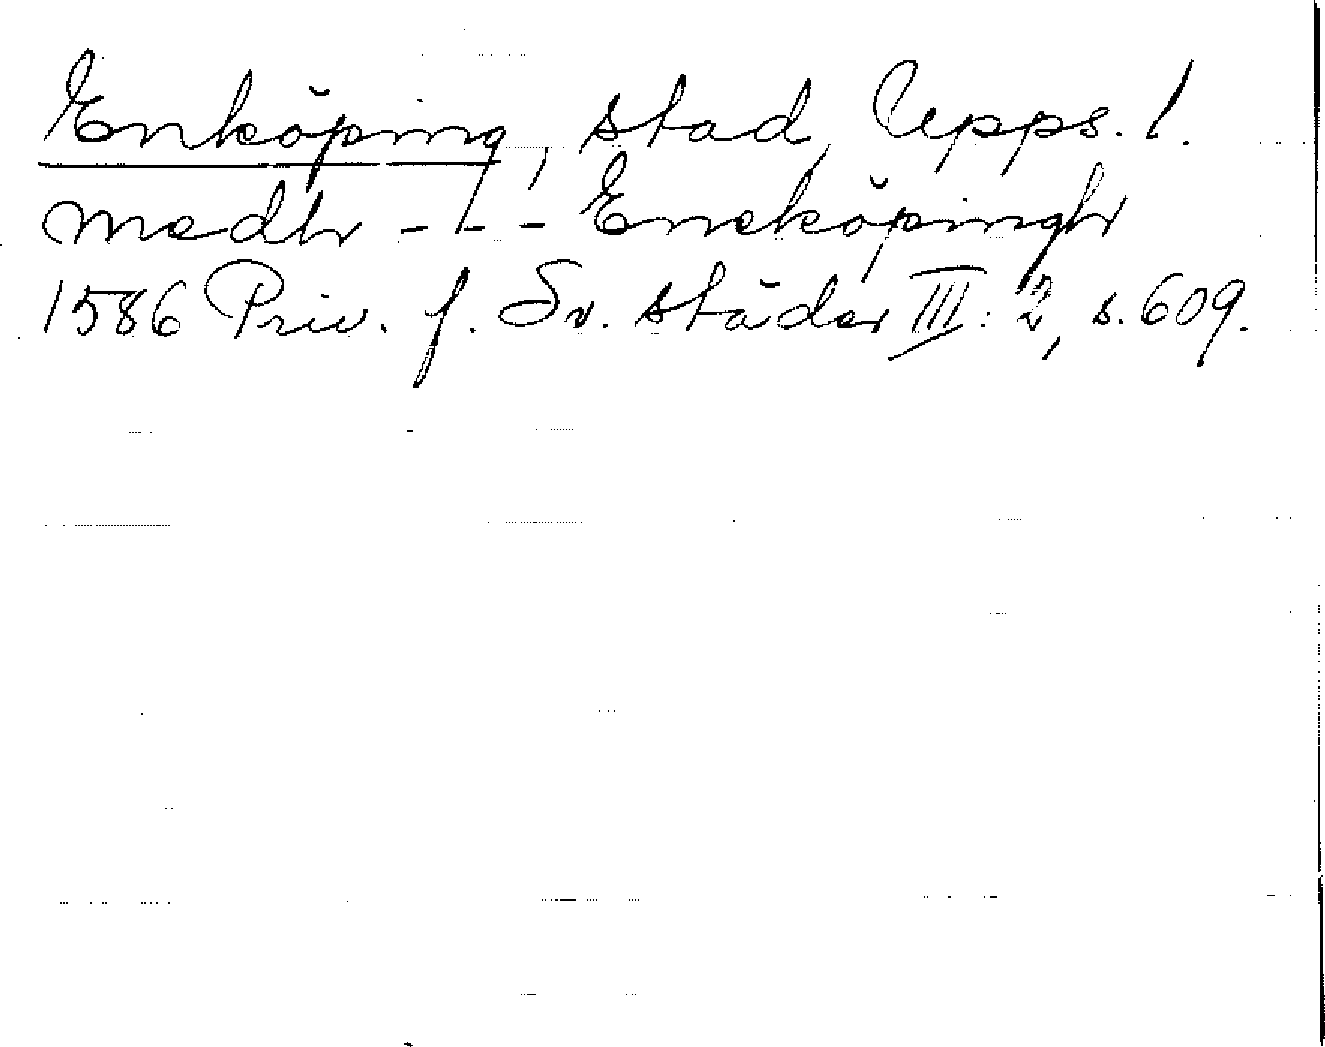 Enköping, stad, Upps. l.
medh - - - Eneköpingh
1586 Priv. f. Sv. städer III: 2, s. 609.